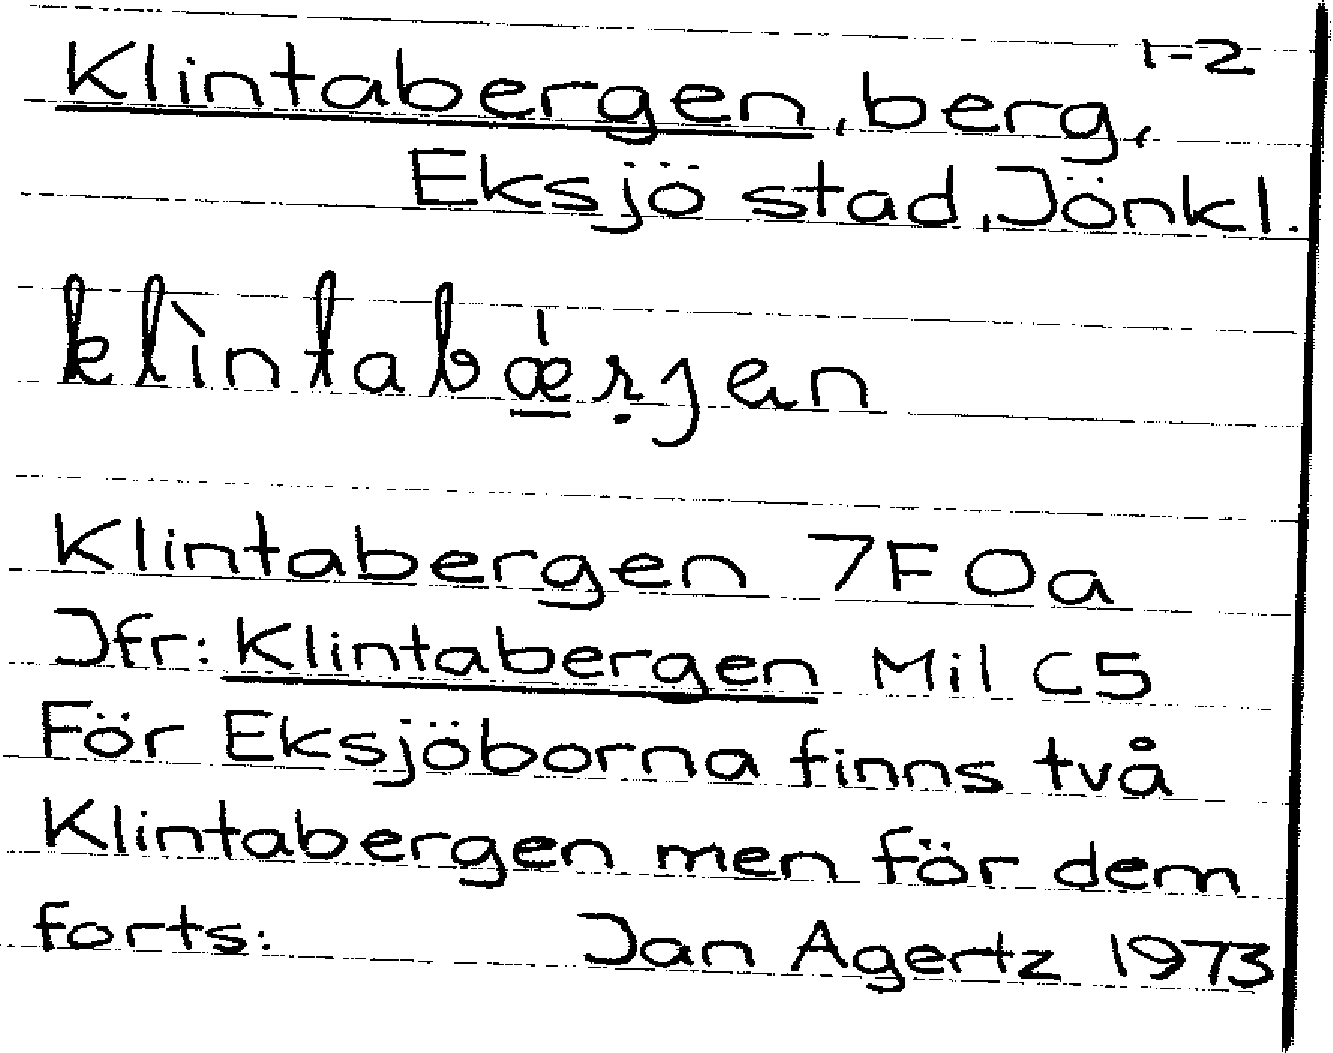 1-2
Klintabergen, berg,
Eksjö stad, Jönkl.
klìntabǽ̱ṛjan
Klintabergen 7F 0a
Jfr: Klintabergen Mil C5
För Eksjöborna finns två
Klintabergen men för dem
forts: Jan Agertz 1973